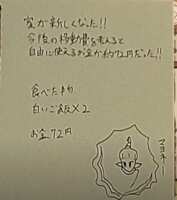 家が新しくなった!!
今後の移動費を考えると
自由に使えるお金が約72円だった!!
食べた物
白いご飯×2
お金72円
マヨネー